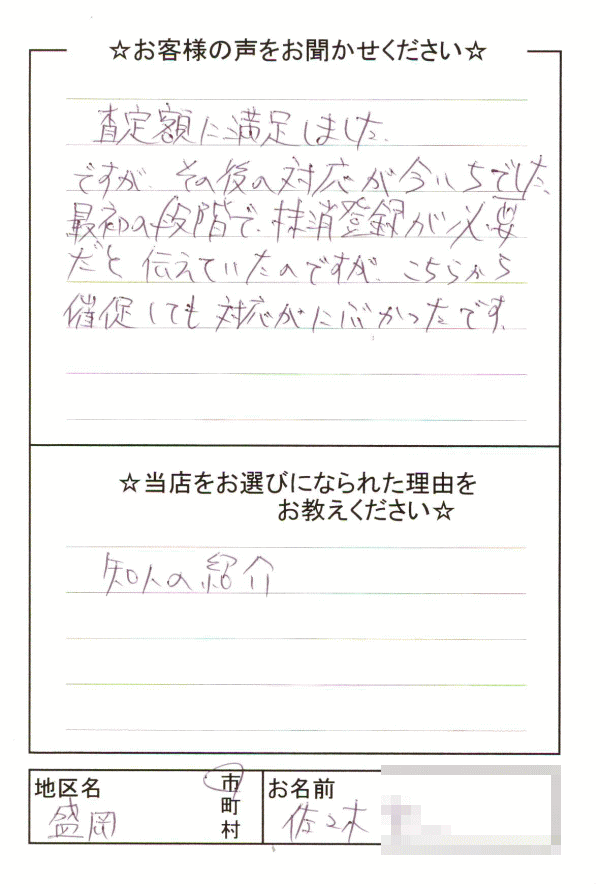 ☆お客様の声をお聞かせください☆
査定額に満足しました。
ですが、その後の対応が今いちでした。
最初の段階で、抹消登録が必要
だと伝えていたのですが、こちらから
催促しても対応がにぶかったです。
☆当店をお選びになられた理由を
お教えください☆
知人の紹介
地区名 市
盛岡 町
村
お名前
佐々木